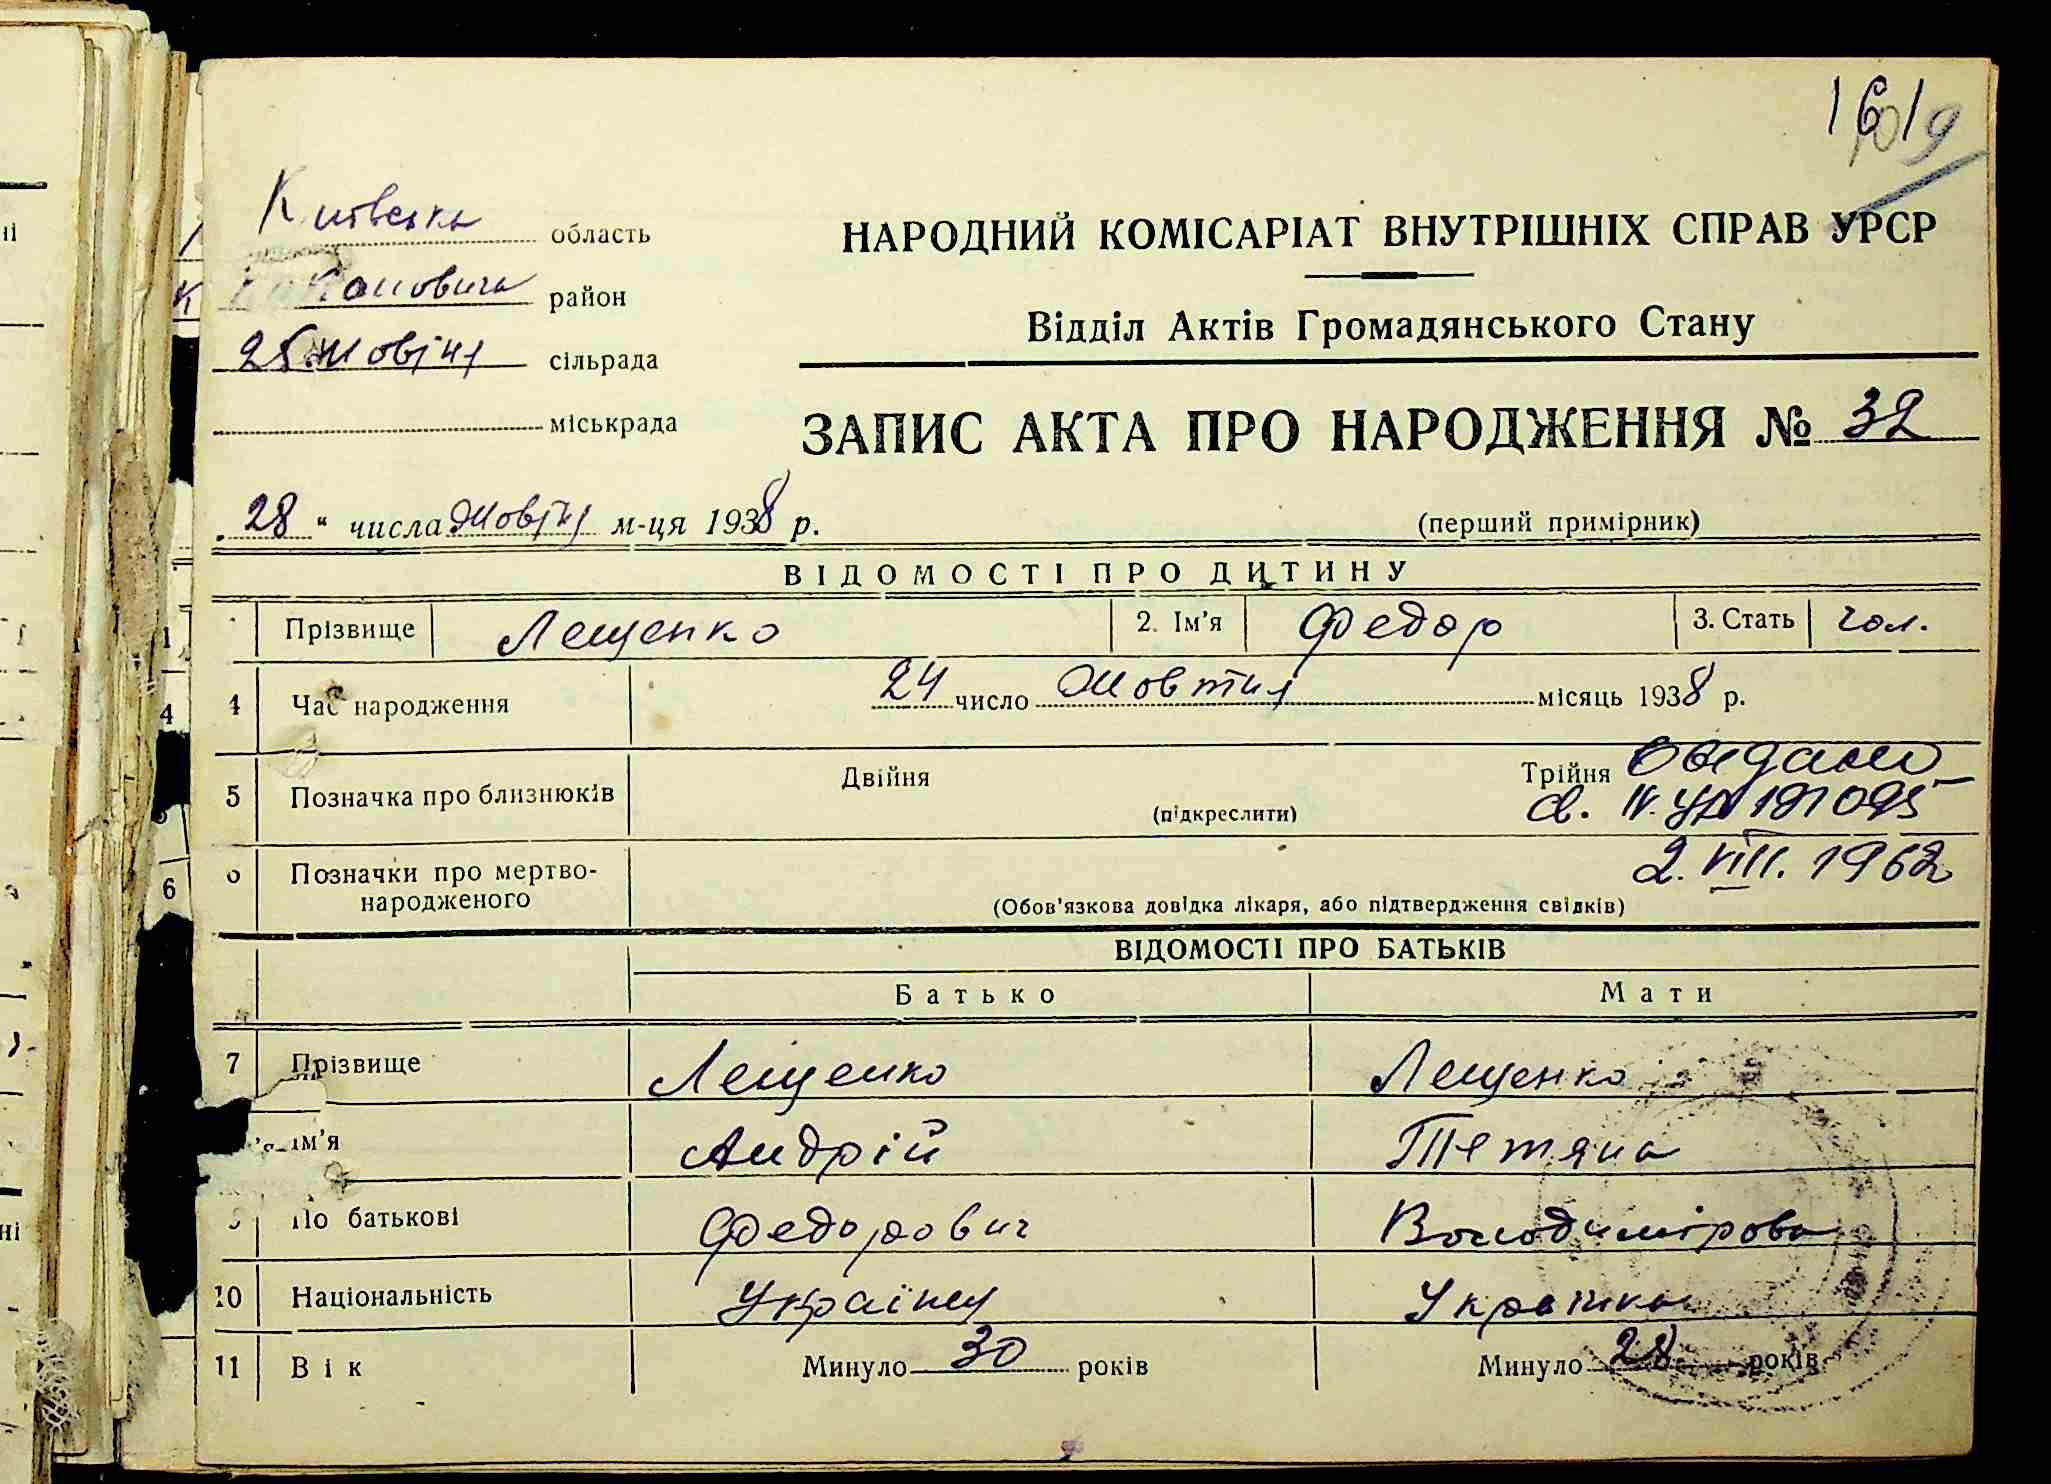 Київська область
Кагановича район
25 Жовтня сільрада
міськрада
НАРОДНИЙ КОМІСАРІАТ ВНУТРІШНІХ СПРАВ УРСР
Відділ Актів Громадянського Стану
ЗАПИС АКТА ПРО НАРОДЖЕННЯ № 32
28 " числа Жовтня м-ця 1938 р.
(перший примірник)
ВІДОМОСТІ ПРО ДИТИНУ
Прізвище Лещенко 2. Ім'я Федор 3. Стать чол.
4 Час народження 24 число Жовтня місяць 1938 р.
5 Позначка про близнюків Двійня (підкреслити) Трійня
св. IV-УР 191095
6 Позначки про мертво-
народженого (Обов'язкова довідка лікаря, або підтвердження свідків)
2.VIII.1962
ВІДОМОСТІ ПРО БАТЬКІВ
Батько Мати
7 Прізвище Лещенко Лещенко
Ім'я Андрій Тетяна
9 По батькові Федорович Володимірова
10 Національність Українец Українка
11 Вік Минуло 30 років Минуло 28 років